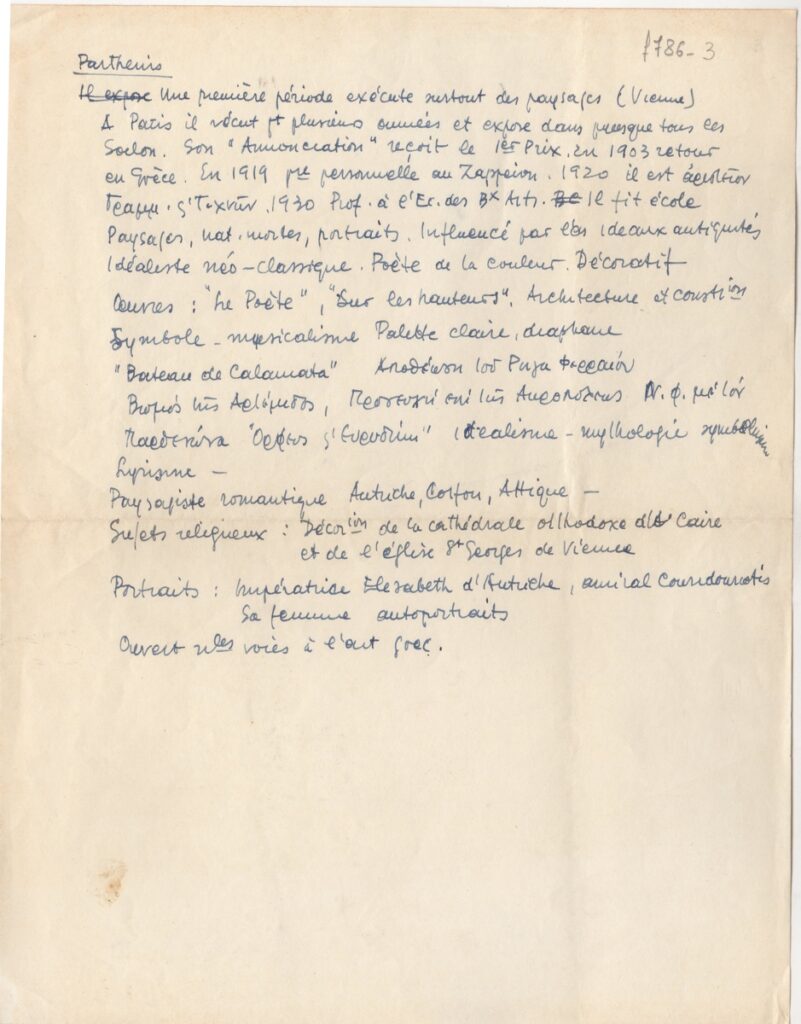 f786-3
Parthenis
Il expose Une première période exécute surtout des paysages (Vienne)
A Paris il vécut pt plusieurs années et expose dans presque tous les
Salon. Son "Annonciation" reçoit le 1er Prix. En 1903 retour
en Grèce. En 1919 personnelle au Zappeion. 1920 il est ἀριστεῖον
Γραμμ. ς' Τεχνῶν. 1930 Prof. à l'Ec. des Bx Arts. Il fit école
Paysages, nat. mortes, portraits. Influencé par les ideaux antiquités
Idéaliste néo-classique. Poète de la couleur. Décoratif
Œuvres : "Le Poète", "Sur les hauteurs". Architecture et constion
Symbole - musicalisme Palette claire, diaphane
"Bateau de Calamata" Αποθέωση του Ρηγα Φερραίου
Βωμός της Αρτέμιδος, Προσευχή επί της Ακροπόλεως Ν. φ. με τόν
Παρθενώνα "Ορφεύς ς' Ευρυδίκη" idéalisme - mythologie symbolisme
Lyrisme -
Paysagiste romantique Autriche, Corfou, Attique -
Sujets religieux : Décorion de la cathédrale orthodoxe du Caire
et de l'église St Georges de Vienne
Portraits : Impératrice Elisabeth d'Autriche, amiral Coundouriotis
Sa femme autoportraits
Ouvert nles voies à l'art grec.